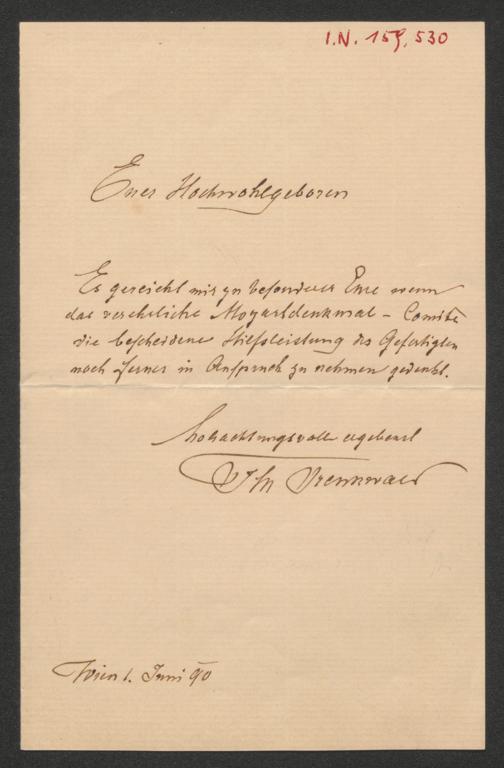 I.N. 159,530
Euer Hochwohlgeboren
Es gereicht mir zu besonderer Ehre wenn
das verehrliche Mozartdenkmal – Comité
die bescheidene Hilfsleistung des Gefertigten
noch ferner in Anspruch zu nehmen gedenkt.
hochachtungsvoll ergebenst
Trenkwald
Wien 1. Juni 90